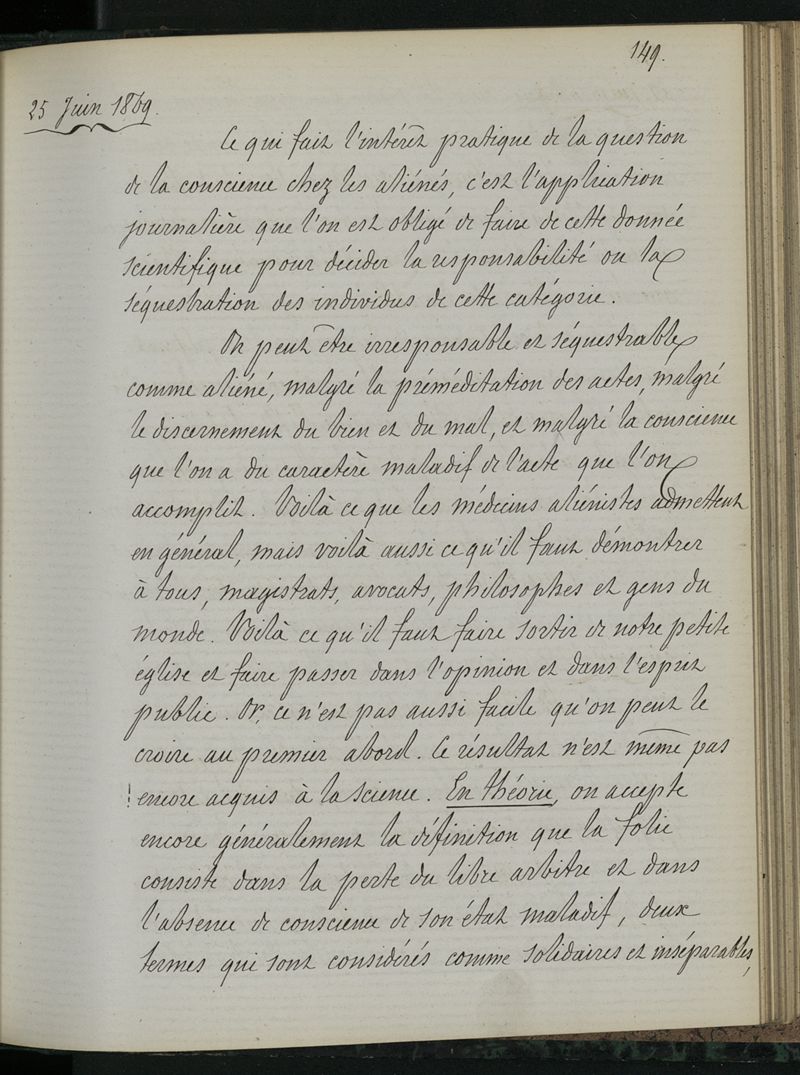 149.
25 Juin 1869.
Ce qui fait l'intérêt pratique de la question
de la conscience chez les aliénés, c'est l'application
journalière que l'on est obligé de faire de cette donnée
scientifique pour décider la responsabilité ou la
séquestration des individus de cette catégorie.
On peut être irresponsable et séquestrable
comme aliéné, malgré la préméditation des actes, malgré
le discernement du bien et du mal, et malgré la conscience
que l'on a du caractère maladif de l'acte que l'on
accomplit. Voilà ce que les médecins aliénistes admettent
en général, mais voilà aussi ce qu'il faut démontrer
à tous, magistrats, avocats, philosophes et gens du
monde. Voilà ce qu'il faut faire sortir de notre petite
église et faire passer dans l'opinion et dans l'esprit
public. Or, ce n'est pas aussi facile qu'on peut le
croire au premier abord. Ce résultat n'est même pas
encore acquis à la science. En théorie, on accepte
encore généralement la définition que la folie
consiste dans la perte du libre arbitre et dans
l'absence de conscience de son état maladif, deux
termes qui sont considérés comme solidaires et inséparables,